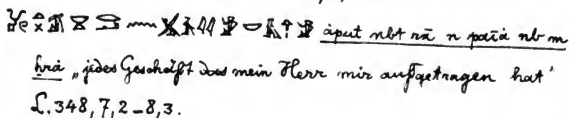 àput nbt rā n païà nb m
hrà „jedes Geschäft das mein Herr mir aufgetragen hat‘
L. 348, 7, 2–8, 3.